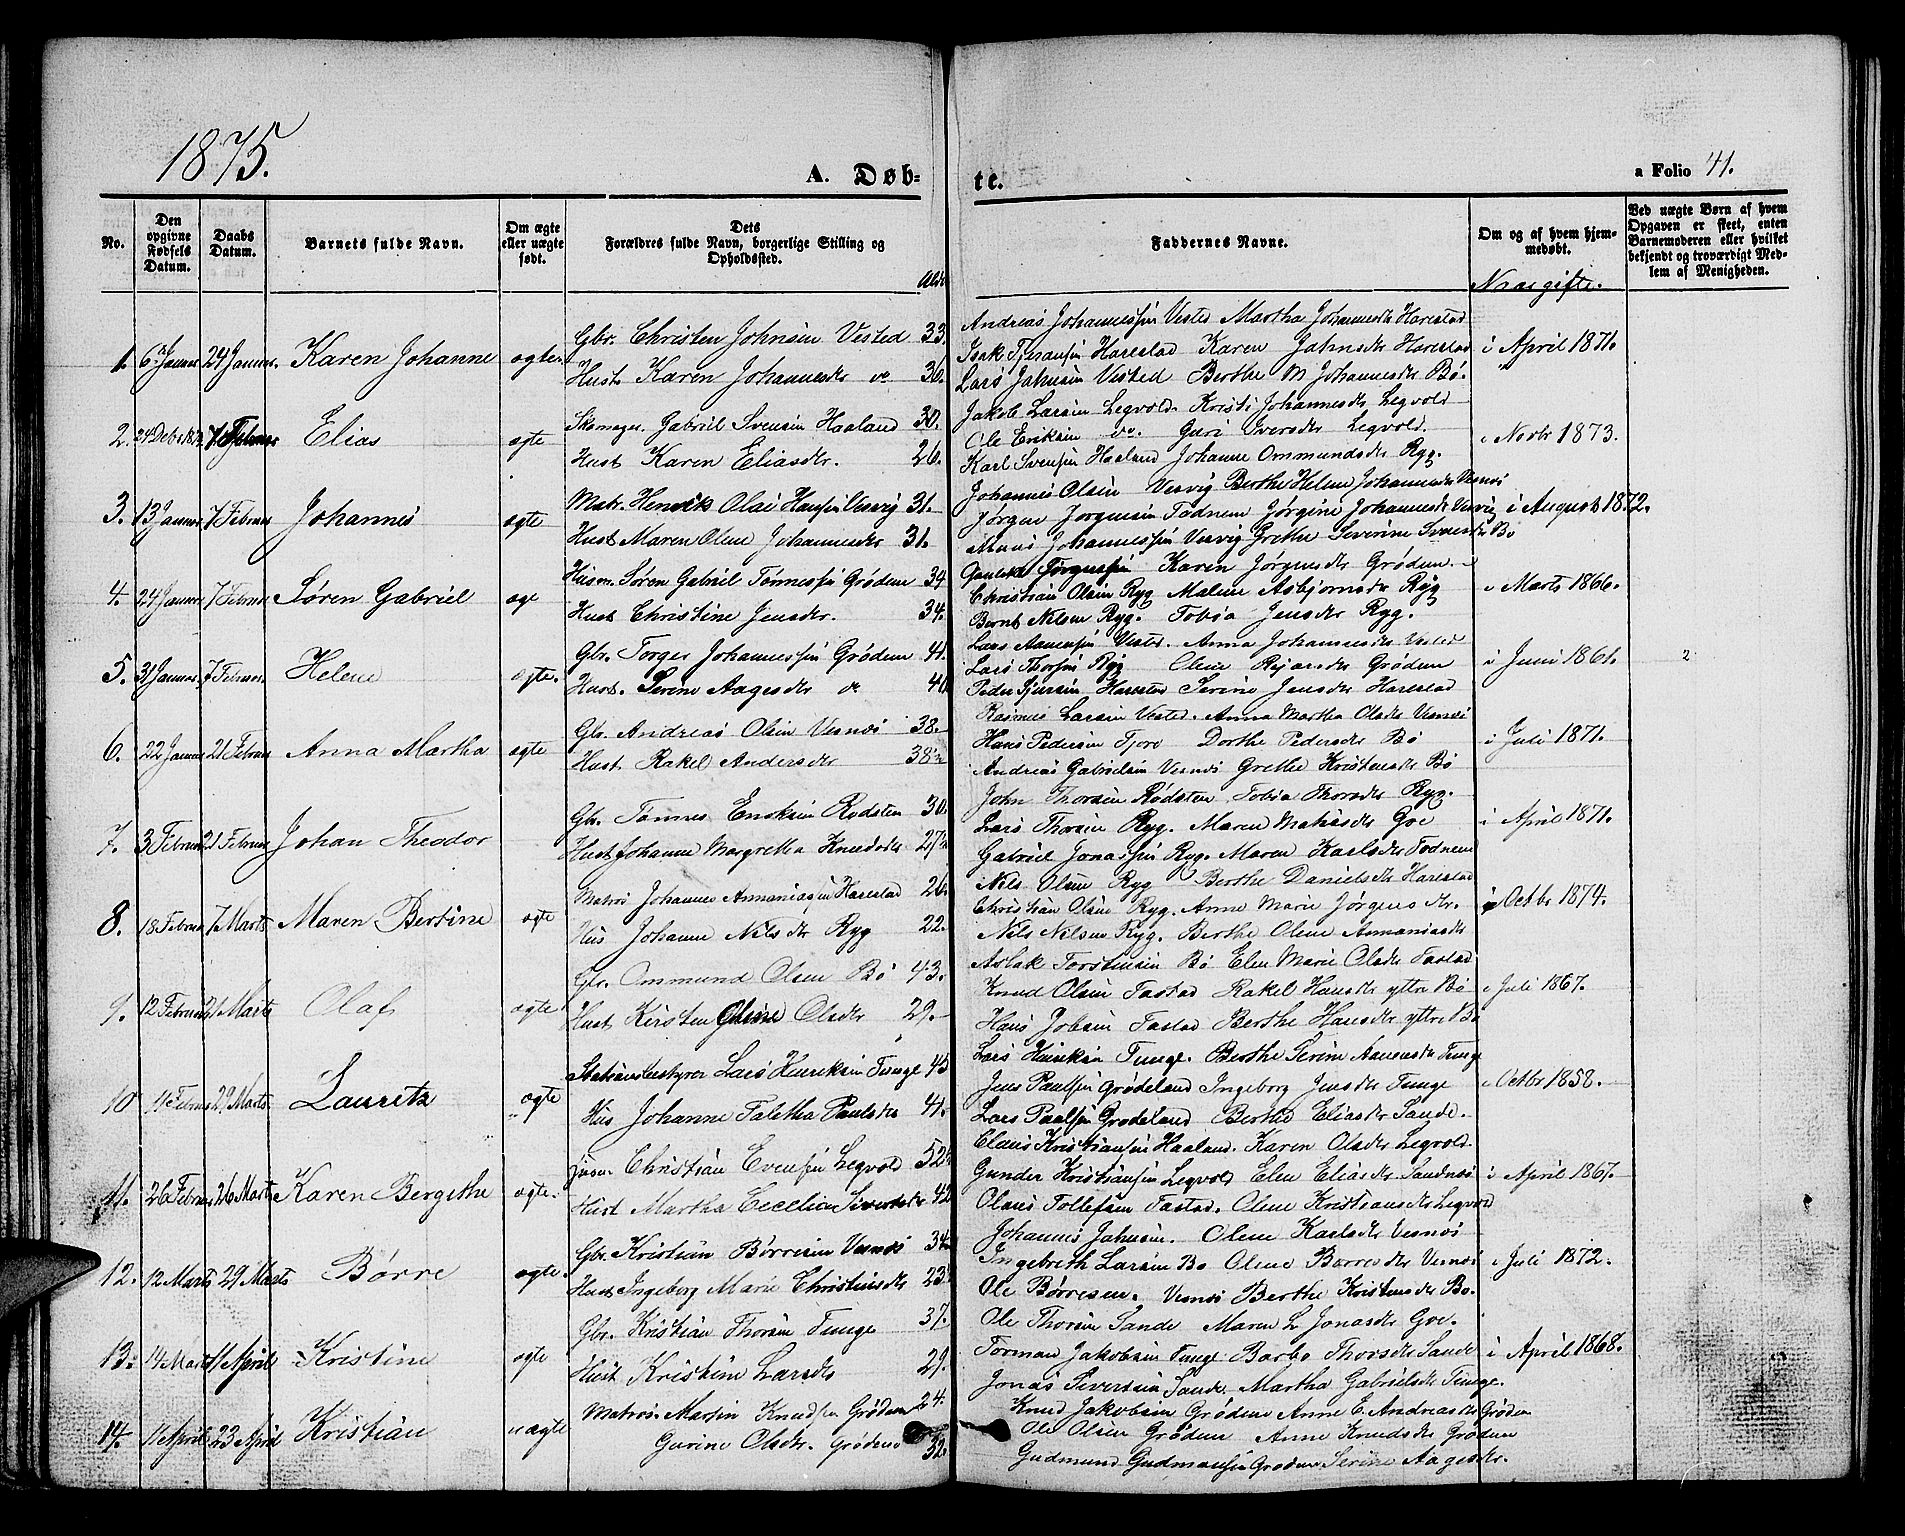 1875.
A. Døb-
te.
a Folio 41.
No.
Den opgivne Fødsels Datum.
Daabs Datum.
Barnets fulde Navn.
Om ægte eller uægte født.
Dets Forældres fulde Navn, borgerlige Stilling og Opholdssted.
Alder
Faddernes Navne.
Om og af hvem hjemmedøbt.
Naar gifte.
Ved uægte Børn af hvem Opgaven er skeet, enten Barnemoderen eller hvilket bekjendt og troværdigt Medlem af Menigheden.
1. 6 Januar 24 Januar. Karen Johanne ægte
Gbr. Christen Johnsen Vested 33.
Hust Karen Johannesdr do 30.
Andreas Johannessen Vested Martha Johannesdr Harestad
Isak Harestad Karen Jahnsdr Harestad
Lars Jahnsen Vested Berthe M Johannesdr Bø.
i April 1871.
2. 24 Debr 1874 7 Februar Elias ægte
Skomager Gabriel Svensen Haaland 30.
Hust Karen Eliasdr. 26.
Jakob Larsen Legvold. Kristi Johannesdr Legvold
Ole Eriksen do. Guri Iversdr Legvold.
Karl Svensen Haaland Johanne Ommundsdr Ryg.
i Novbr 1873.
3. 13 Januar 7 Februar Johannes ægte
Matr. Henrik Olai Hansen Vesvig 31.
Hust Maren Olene Johannesdr 31.
Johannes Olsen Vesvig Berthe Helene Johannesdr Vesnøs
Jørgen Jørgensen Todnem Jørgine Johannesdr Vesvig
Johannessen Vesvig Grethe Severine Svensdr Bø
i August 1872.
4. 24 Januar 7 Februar Søren Gabriel æge
Husm. Søren Gabriel Tønnessen Grødem 34
Hust Christine Jensdr. 34.
Jørgensen Karen Jørgensdr Grødem.
Christian Olsen Ryg Malene Asbjørnsdr Ryg
Bernt Nilsen Ryg. Tobia Jensdr Ryg.
i Marts 1866.
5. 31 Januar 7 Februar. Helene ægte.
Gbr. Torger Johannessen Grødem 41.
Hust. Serine Aagesdr do 40
Lars Aanensen Vested. Anna Johannesdr Vested
Lars Thorsen Ryg Olene Rejarsdr Grødem
Peder Harestad Serine Jensdr Harestad
i Juni 1861.
2
6. 22 Januar 21 Februar Anna Martha ægte
Gbr. Andreas Olsen Vesnøs 38.
Hust Rakel Andersdr 38½
Rasmus Larsen Vested. Anna Martha Olsdr Vesnøs
Hans Pedersen Tjore Dorthe Pedersdr Bø
Andreas Gabrielsen Vesnøs Grethe Kristensdr Bø
i Juli 1871.
7. 3 Februar 21 Februar Johan Theodor
Gbr. Tønnes Enoksen Rødsten 30.
Hust Johanne Margretha Knudsdr 27½
John Thorsen Rødsten Tobia Thorsdr Ryg.
Lars Thorsen Ryg. Maren Matiasdr Goe
Gabriel Jonassen Ryg. Maren Karlsdr Todnem
i April 1871.
8. 18 Februar 7 Marts Maren Bertine ægte
Matros Johannes Annaniassen Harestad 26.
Hus Johanne Nilsdr Ryg 22.
Nils Olsen Ryg Berthe Danielsdr Harestad
Christian Olsen Ryg. Anne Marie Jørgensdr.
Nils Nilsen Ryg. Berthe Olene Annaniasdr
i Octbr 1874.
9. 12 Februar 21 Marts Olaf ægte
Gbr. Ommund Olsen Bø 43.
Hust Kirsten Oline Olsdr 29.
Aslak Torstensen Bø Elen Marie Olsdr Tastad
Knud Olsen Tastad Rakel Hansdr ytre Bø
Hans Jobsen Tastad Berthe Hansdr ytre Bø
i Juli 1867.
10 11 Februar 29 Marts Lauritz ægte
Stationsbestyrer Lars Henriksen Tunge 45
Hus Johanne Taletha Paulsdr 41.
Lars Henriksen Tunge. Berthe Serine Aanensdr Tunge
Jens Paulsen Grødeland Ingeborg Jensdr Tunge
Lars Paulsen Grødeland Berthe Eliasdr Sande.
i Octbr 1852.
11. 26 Februar 26 Marts Karen Bergithe ægte.
Christian Evensen Legvold 52½
Hust Martha Cecelia Sivertsdr 42
Claus Kristiansen Haaland. Karen Olsdr Legvold.
Gunder Kristiansen Legvold Elen Eliasdr Sandnøs
Olaus Tollefsen Tastad. Olene Kristiansdr Legvold
i April 1867.
12. 12 Marts 29 Marts Børre ægte.
Gbr. Kristian Børresen Vesnøs 34
Hust Ingeborg Marie Christiansdr 23
Johannes Jahnsen. Olene Karlsdr Vesnøs
Ingebreth Larsen Bø Olene Børresdr Vesnøs
Ole Børresen. Vesnøs Berthe Kristensdr Bø.
i Juli 1872.
13. 14 Marts 11 April Kristine ægte
Gbr. Kristian Thorsen Tunge 37.
Hust Kristine Larsdr 29.
Ole Thorsen Sande Maren L Jonasdr Goe.
Torman Jakobsen Tunge Barbo Thorsdr Sande
Jonas Sivertsen Sande. Martha Gabrielsdr Tunge.
i April 1868.
14. 11 April 23 April Kristian uægte
Matros Martin Knudsen Grødem 24.
Gurine Olsdr. Grødem 32.
Knud Jakobsen Grødem Anne E. Andreasdr Grødem
Ole Olsen Grødem Anne Knudsdr Grødem
Gudmund Gudmunsen Grødem Serine Aagesdr.